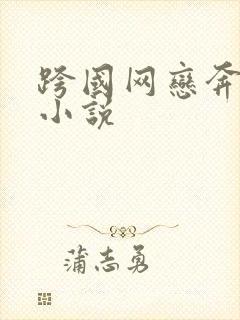 跨國网戀奔
小說
蒲志勇